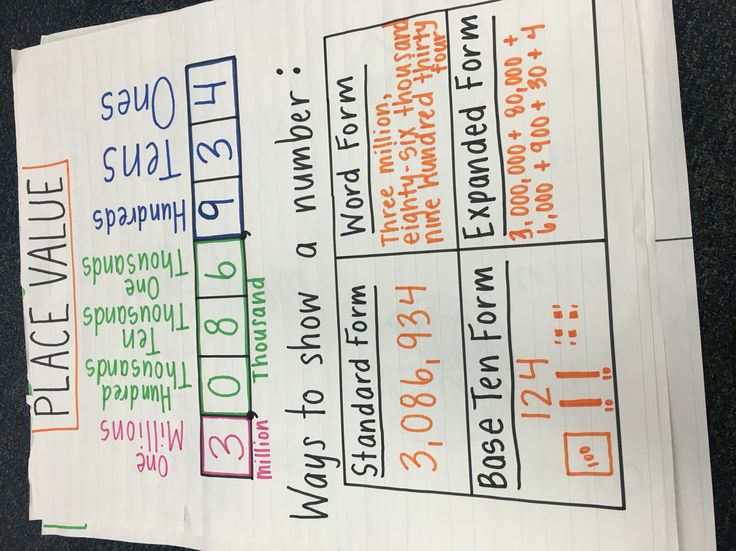 PLACE VALUE
One Millions
Hundred Thousands
Ten Thousands
One Thousands
Hundreds
Tens
Ones
3, 0 8 6, 9 3 4
million Thousand
Ways to show a number:
Standard Form
3,086,934
Word Form
Three million,
eighty-six thousand
nine hundred thirty
four
Base Ten Form
124
100
10 10
Expanded Form
3,000,000 + 80,000 +
6,000 + 900 + 30 + 4